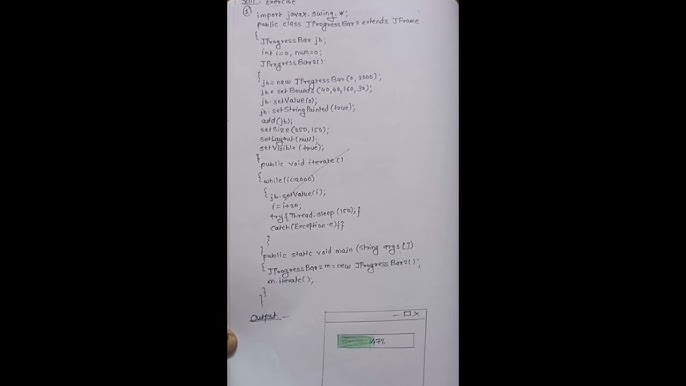 XIII. Exercise
① import javax.swing.*;
public class JProgressBar2 extends JFrame
{
JProgressBar jb;
int i=0, num=0;
JProgressBar2()
{
jb=new JProgressBar(0,2000);
jb.setBounds(40,40,160,30);
jb.setValue(0);
jb.setStringPainted(true);
add(jb);
setSize(250,150);
setLayout(null);
setVisible(true);
}
public void iterate()
{
while(i<=2000)
{ jb.setValue(i);
i=i+20;
try{Thread.sleep(150);}
catch(Exception e){}
}
}
public static void main(String args[])
{ JProgressBar2 m=new JProgressBar2();
m.iterate();
}
}
Output -
- □ X
47%